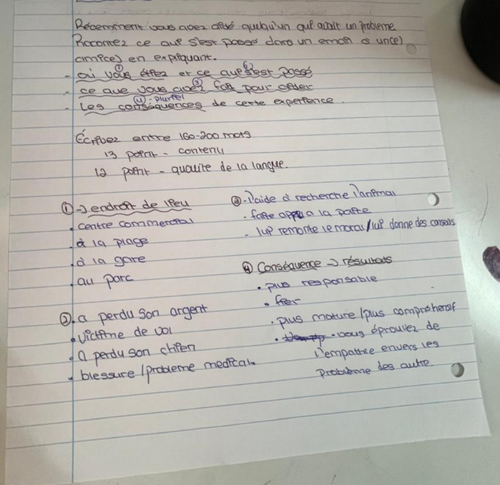 Récemment vous avez aidé quelqu'un qui avait un probleme.
Racontez ce qui s'est passé dans un email à un(e)
ami(e) en expliquant.
- où vous étiez et ce qui s'est passé
- ce que vous avez fait pour aider
- Les conséquences de cette experience.
④ plural
Écrivez entre 160-200 mots
13 point - contenu
12 point - qualite de la langue.
① → endroit de lieu
• centre commercial
• à la plage
• à la gare
• au parc
②. a perdu son argent
• victime de vol
• a perdu son chien
• blessure / probleme medical.
③. l'aide à recherche l'animal
• faite a la police
- lui remonte le moral / lui donne des conseils
④ Conséquence → résultats
• plus responsable
• fier
• plus mature / plus comprehensif
• vous éprouvez de
l'empathie envers les
problème des autre